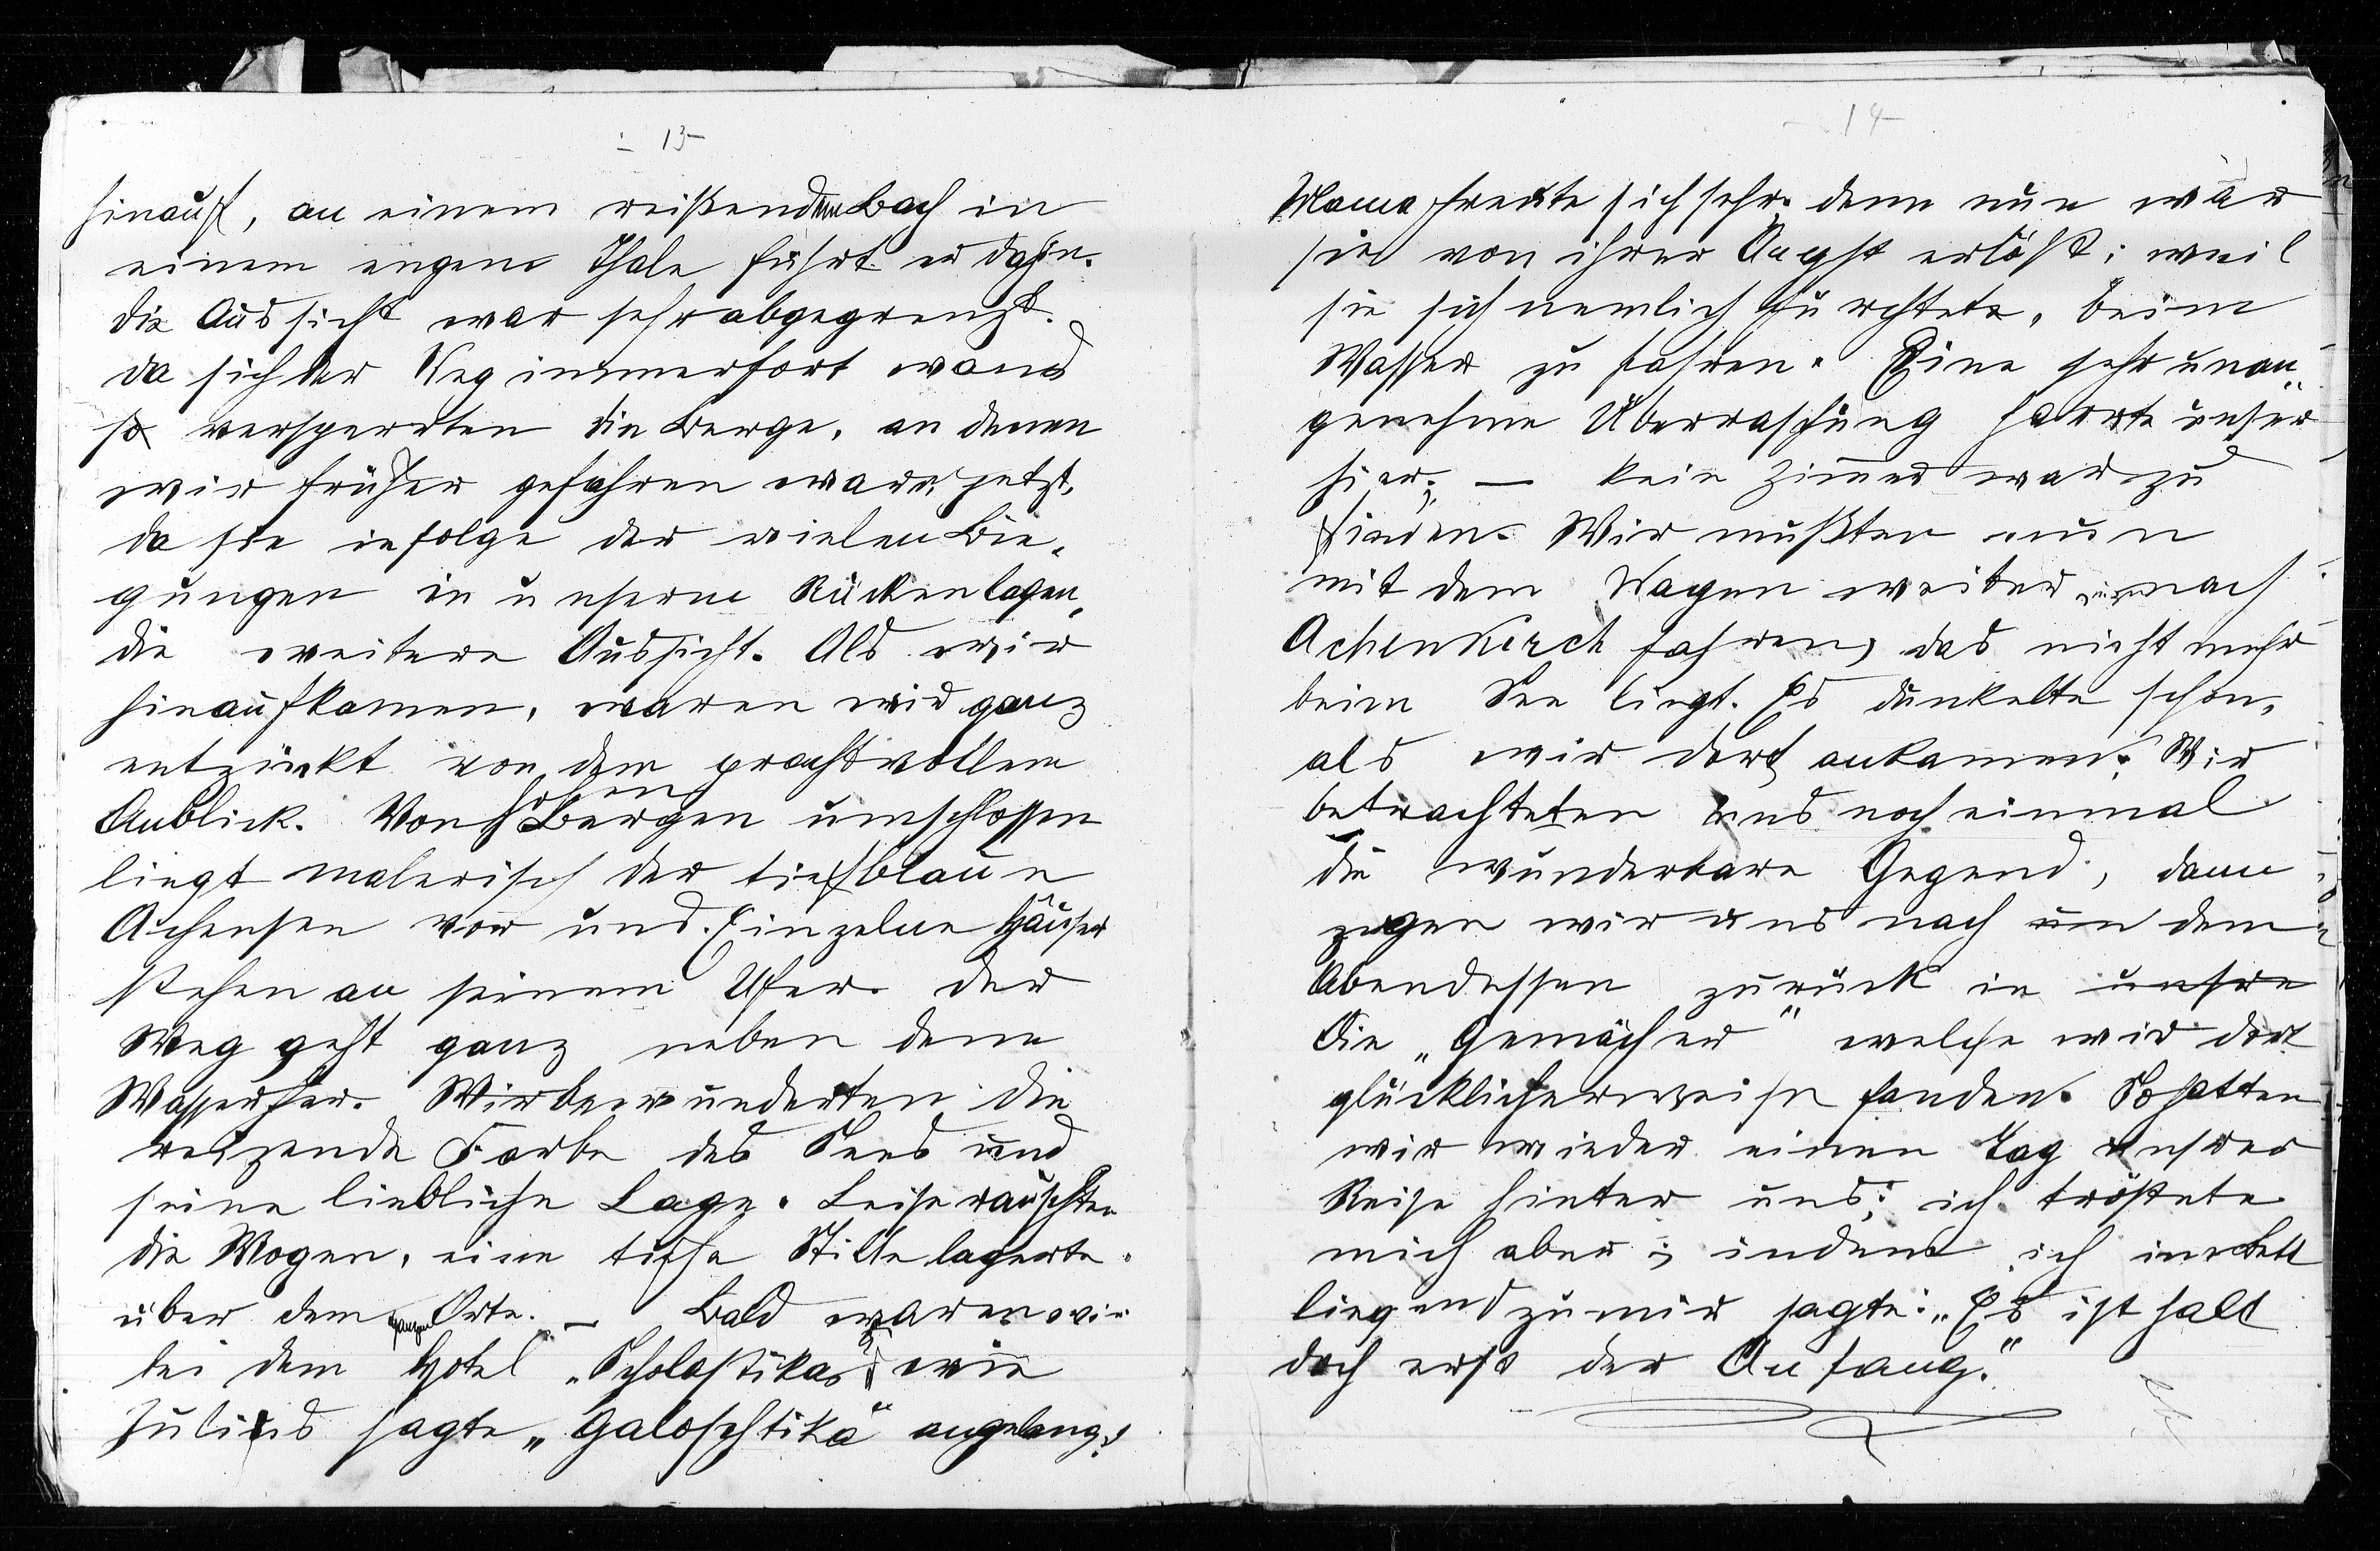 - 13 -
hinauf, an einem reißendem Bach in
einem engem Thale führt er dahin.
die Aussicht war sehr abgegrenzt.
da sich der Weg immerfort wand
so versperrten die Berge, an denen
wir früher gefahren waren, jetzt,
da sie infolge der vielen Bie-
gungen in unserm Rücken lagen,
die weitere Aussicht. Als wir
hinaufkamen, waren wir ganz
entzückt von dem prachtvollem
Anblick. Von hohen Bergen umschlossen
liegt malerisch der tiefblaue
Achensee vor uns. Einzelne Häuser
stehen an seinem Ufer. der
Weg geht ganz neben dem
Wasser her. Wir bewunderten die
reizende Farbe des Sees und
seine liebliche Lage. Leise rauschten
die Wogen, eine tiefe Stille lagerte
über dem ganzen Orte. — Bald waren wir
bei dem Hotel „Scholastika, wie
Julius sagte „Galoschtika" angelangt
- 14 -
Mama freute sich sehr, denn nun war
sie von ihrer Angst erlöst; weil
sie sich nemlich fürchtete, beim
Wasser zu fahren. Eine sehr unan-
genehme Überraschung harrte unser
hier; — kein Zimmer war zu
finden. Wir mußten nun
mit dem Wagen weiter nach
Achenkirch fahren, das nicht mehr
beim See liegt. Es dunkelte schon,
als wir dort ankamen. Wir
betrachteten uns noch einmal
die wunderbare Gegend, dann
zogen wir uns nach un dem
Abendessen zurück in unsre
die „Gemächer" welche wir dort
glücklicherweise fanden. So hatten
wir wieder einen Tag unsrer
Reise hinter uns; ich tröstete
mich aber; indem ich im Bett
liegend zu mir sagte: „Es ist halt
doch erst der Anfang."